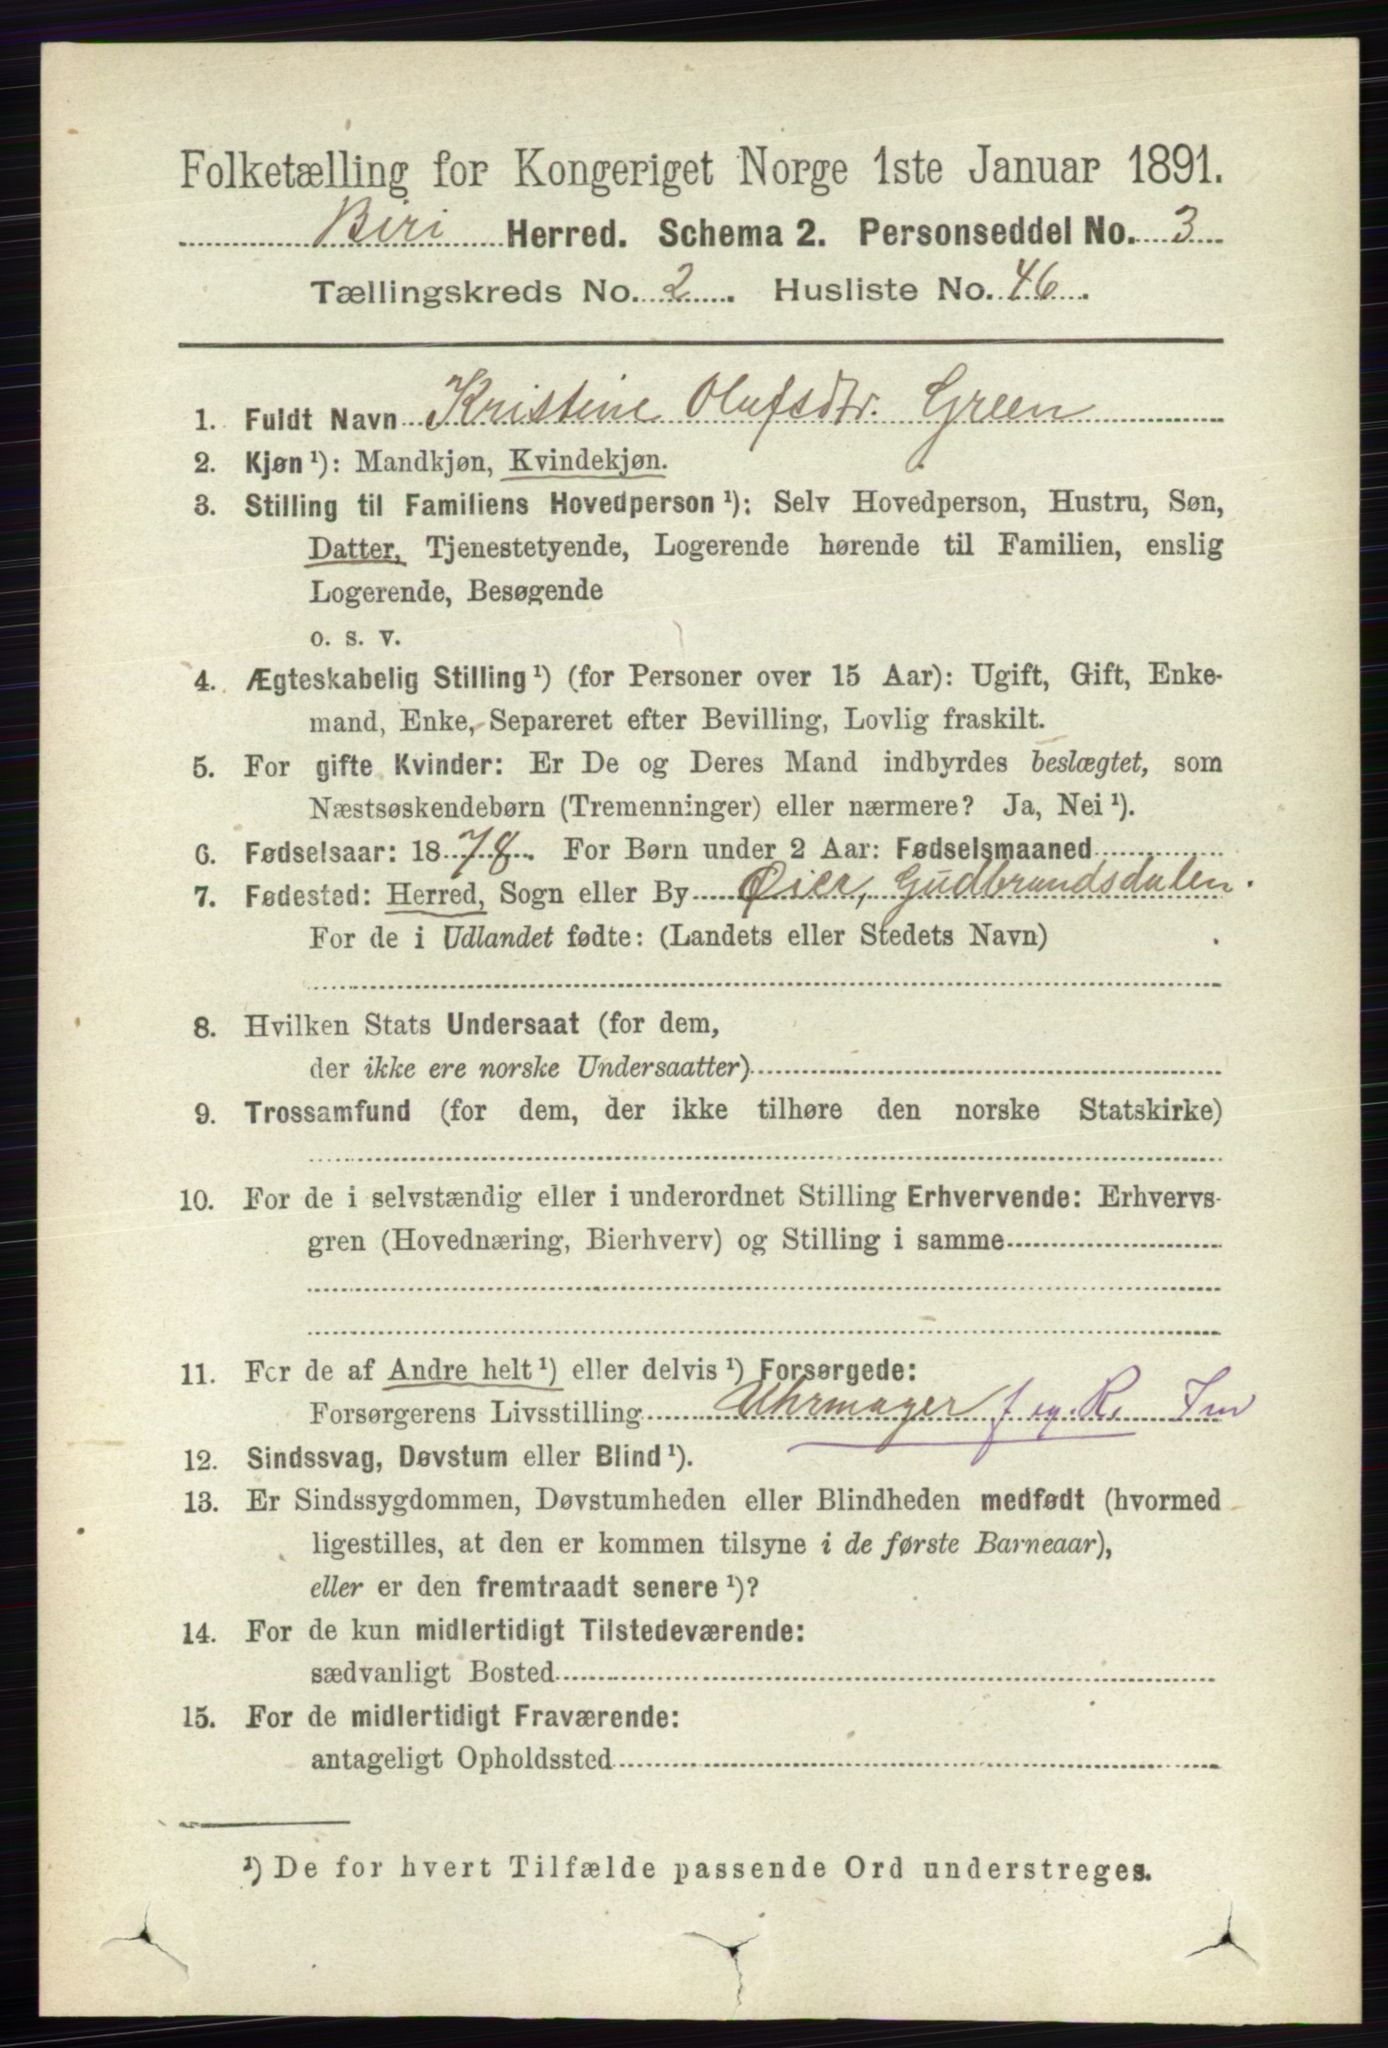 Folketælling for Kongeriget Norge 1ste Januar 1891.
Biri Herred. Schema 2. Personseddel No. 3
Tællingskreds No. 2. Husliste No. 46.
1. Fuldt Navn Kristine Olufsdtr. Green
2. Kjøn ¹): Mandkjøn, Kvindekjøn.
3. Stilling til Familiens Hovedperson ¹): Selv Hovedperson, Hustru, Søn,
Datter, Tjenestetyende, Logerende hørende til Familien, enslig
Logerende, Besøgende
o. s. v.
4. Ægteskabelig Stilling ¹) (for Personer over 15 Aar): Ugift, Gift, Enke-
mand, Enke, Separeret efter Bevilling, Lovlig fraskilt.
5. For gifte Kvinder: Er De og Deres Mand indbyrdes beslægtet, som
Næstsøskendebørn (Tremenninger) eller nærmere? Ja, Nei ¹).
6. Fødselsaar: 1878. For Børn under 2 Aar: Fødselsmaaned
7. Fødested: Herred, Sogn eller By Øier, Gudbrandsdalen.
For de i Udlandet fødte: (Landets eller Stedets Navn)
8. Hvilken Stats Undersaat (for dem,
der ikke ere norske Undersaatter)
9. Trossamfund (for dem, der ikke tilhøre den norske Statskirke)
10. For de i selvstændig eller i underordnet Stilling Erhvervende: Erhvervs-
gren (Hovednæring, Bierhverv) og Stilling i samme
11. For de af Andre helt ¹) eller delvis ¹) Forsørgede:
Forsørgerens Livsstilling Uhrmager f eg. R.
12. Sindssvag, Døvstum eller Blind ¹).
13. Er Sindssygdommen, Døvstumheden eller Blindheden medfødt (hvormed
ligestilles, at den er kommen tilsyne i de første Barneaar),
eller er den fremtraadt senere ¹)?
14. For de kun midlertidigt Tilstedeværende:
sædvanligt Bosted
15. For de midlertidigt Fraværende:
antageligt Opholdssted
¹) De for hvert Tilfælde passende Ord understreges.